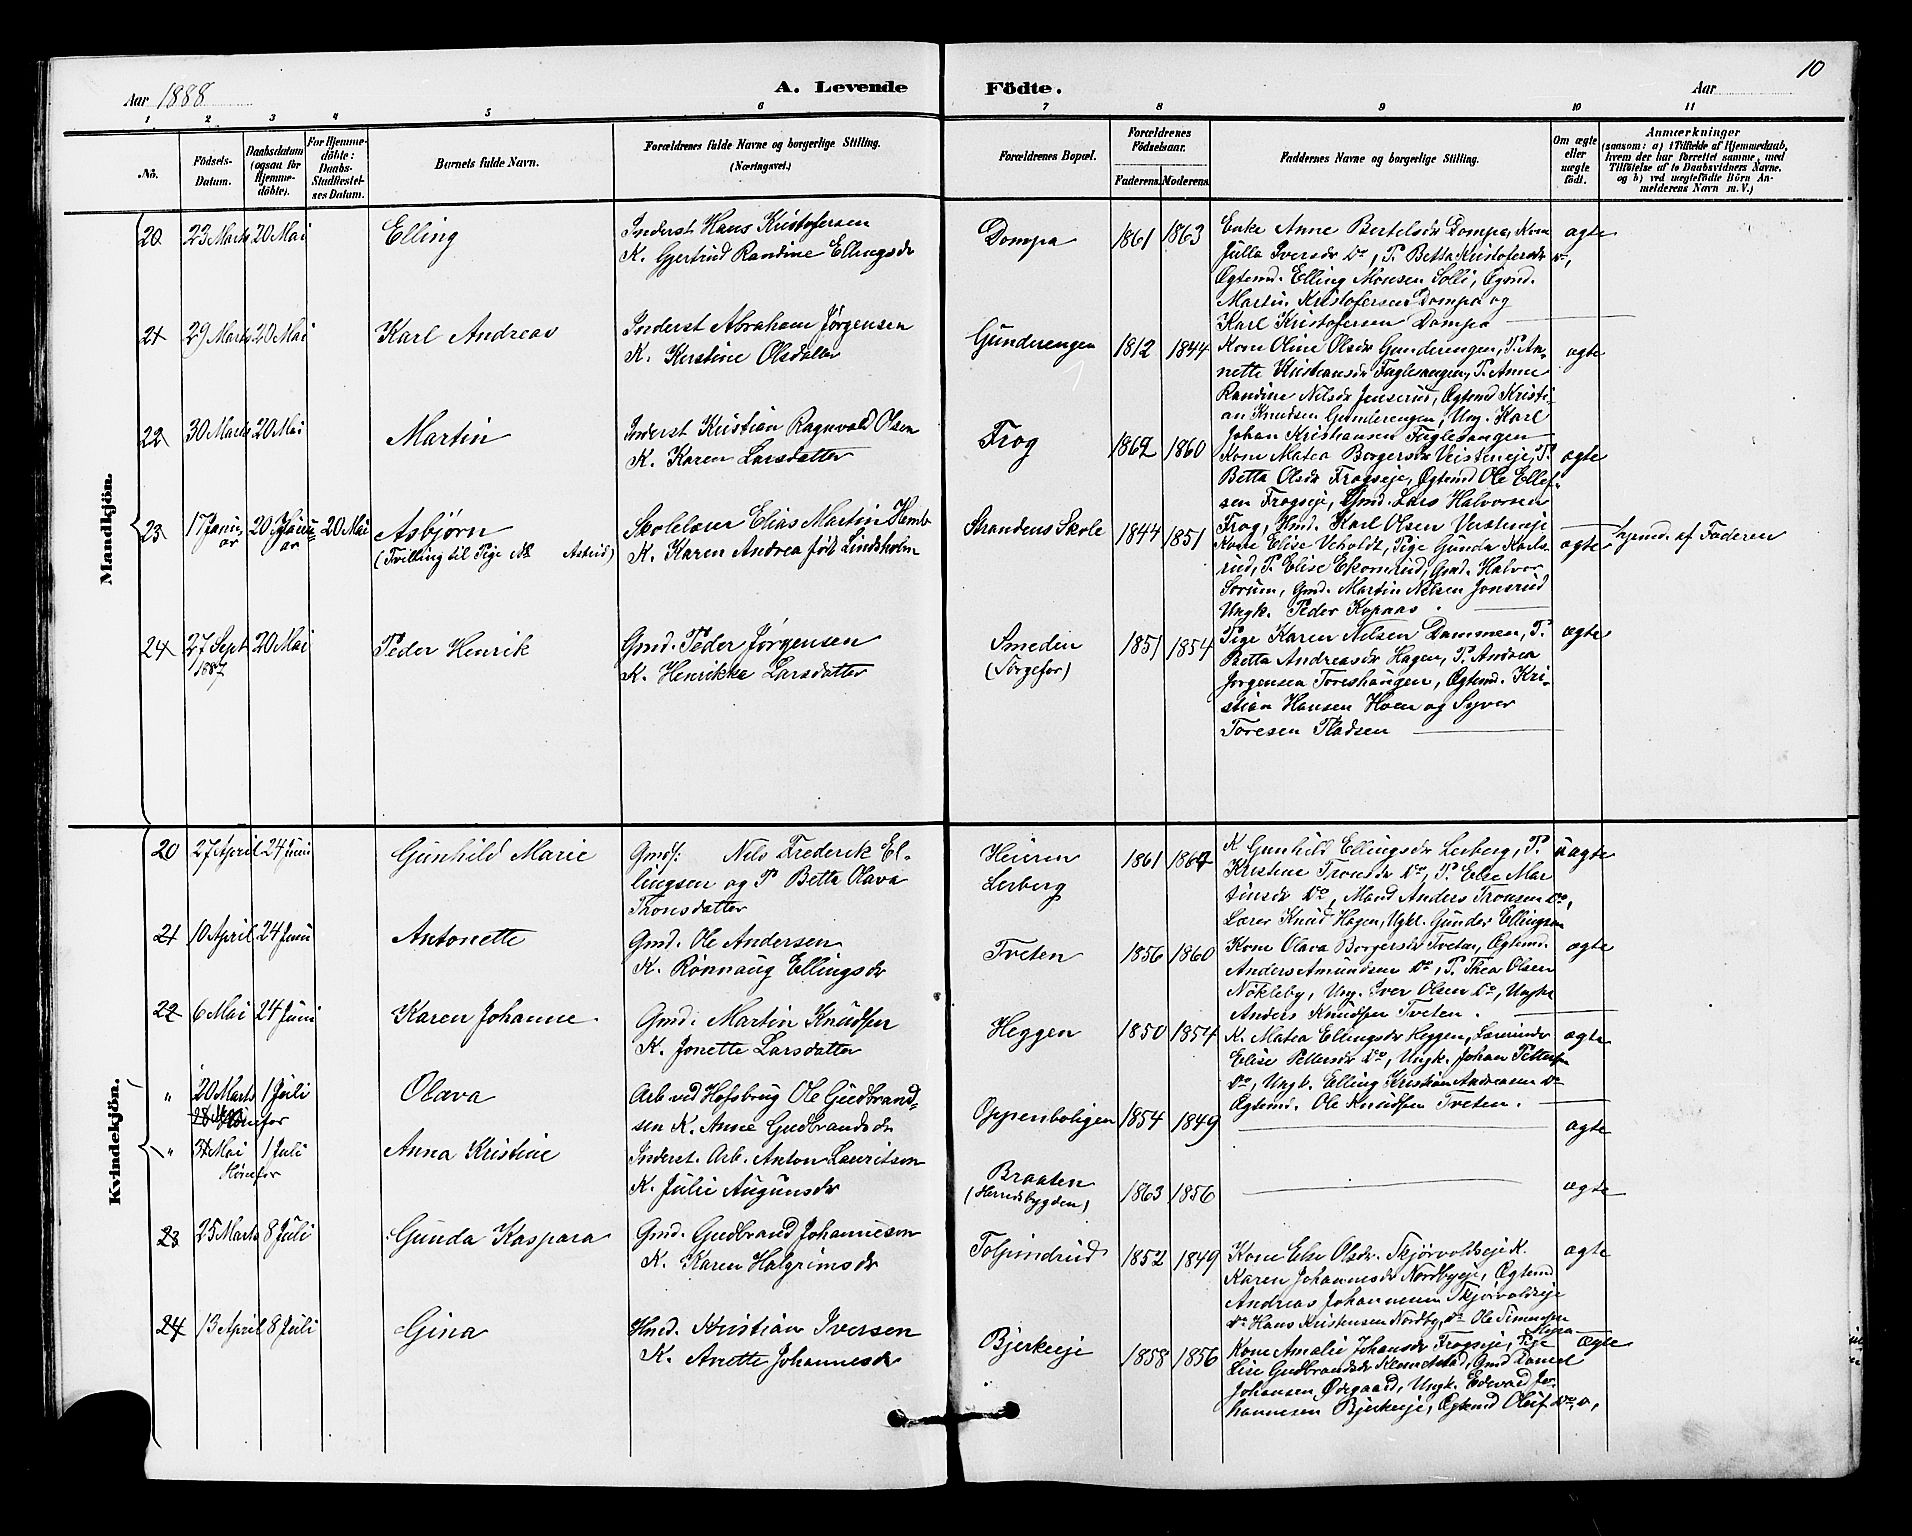 10
Aar 1888
A. Levende Födte.
Aar
1 2 3 4 5 6 7 8 9 10 11
No.
Födsels-Datum.
Daabsdatum (ogsaa for Hjemme-döbte).
For Hjemme-döbte: Daabs-Stadfæstel-ses Datum.
Barnets fulde Navn.
Forældrenes fulde Navne og borgerlige Stilling. (Næringsvei.)
Forældrenes Bopæl.
Forældrenes Födselsaar.
Faderens. Moderens.
Faddernes Navne og borgerlige Stilling.
Om ægte eller uægte født.
Anmærkninger
(saasom: a) i Tilfælde af Hjemmedaab, hvem der har forrettet samme, med Tilföielse af to Daabsvidners Navne, og b) ved uægtefödte Börn An-melderens Navn m. V.)
Mandkjön.
20 23 Marts 20 Mai Elling
Inderst Hans Kristofersen
K. Gjertrud Randine Ellingsdr
Dompa 1861 1863
Enke Anne Bertelsdr Dompa, Kone
Julla Iversdr Do, P. Betta Kristofersdr Do,
Ægtemd. Elling Monsen Solli, Gmd.
Martin Kristofersen Dompa og
Karl Kristofersen Dompa
ægte
21 29 Marts 20 Mai Karl Andreas
Inderst Abraham Jørgensen
K. Kirstine Olsdatter
Gunderengen 1812 1844
Kone Oline Olsdr Gunderengen, P. An-
nette Kristiansdr Fuglesangen, P. Anne
Randine Nilsdr Jenserud, Ægtemd Kristi-
an Knudsen Gunderengen, Ung. Karl
Johan Kristiansen Fuglesangen
ægte
22 30 Marts 20 Mai Martin
Inderst Kristian Ragnvald Olsen
K. Karen Larsdatter
Frog 1862 1860
Kone Matea Borgersdr Veisteneje, P.
Betta Olsdr Frogseje, Ægtemd Ole Ellef-
sen Frogseje, Gmd. Lars Halvorsen
Frog, Hmd. Karl Olsen Veisteneje
ægte
23 17 Janu-ar 20 Janu-ar 20 Mai Asbjørn
(Tvilling til Pige No Astrid)
Skolelærer Elias Martin Hamb
K. Karen Andrea født Lindsholm
Strandens Skole 1844 1851
Kone Elise Veholdt, Pige Gunda Karls-
rud, P. Elise Ekornrud, Gmd. Halvor
Sørum, Gmd. Martin Nilsen Jonsrud
Ungk. Peder Kopnaas.
ægte
hjemd. af Faderen
24 27 Sept 1887 20 Mai Peder Henrik
Gmd. Peder Jørgensen
K. Henrikke Larsdatter
Smedin
(Sørgefor)
1851 1854
Pige Karen Nilsen Dammen, P.
Betta Andreasdr Hagen, P. Andrea
Jørgensen Toreshaugen, Ægtemd. Kri-
stian Hansen Hoen og Syver
Toresen Pladsen
ægte
Kvindekjön.
20 27 April 24 Juni Gunhild Marie
Gmdf: Nils Frederik El-
lingsen og P Betta Olava
Tronsdatter
Heieren
Lerberg
1861 1867
K Gunhild Ellingsdr Lerberg, P.
Kristine Tronsdr Do, P. Else Mar
tinsdr Do, Mand Anders Tronsen Do,
Lærer Knud Hagen, Ugkl. Gunder Ellingsen
uægte
21 10 April 24 Juni Antonette
Gmd. Ole Andersen
K. Rønnaug Ellingsdr
Tveten 1856 1860
Kone Olava Borgersdr Tveten, Ægtemd.
Anders Amundsen Do, P. Thea Olsen
Nøkleby, Ung. Iver Olsen Do, Ungk.
Anders Knudsen Tveten.
ægte
22 6 Mai 24 Juni Karen Johanne.
Gmd. Martin Knudsen
K. Jonette Larsdatter
Heggen 1850 1854
K. Matea Ellingsdr Heggen,
Elise Pettersdr Do, Ungk. Johan Pettersen
Do, Ungk. Elling Kristian Andreasen Do
Ægtemd. Ole Knudsen Tveten.
ægte
" 20 Marts 1 Juli Olava
Hønefos
Arb ved Hofsbrug Ole Gudbrand-
sen K. Anne Gudbrandsdr
Oppenboligen 1854 1849
ægte
" Mai 1 Juli Anna Kristine
Hønefos
Inderst. Arb. Anton Lauritsen
K. Julie Augunsdr
Braaten
(Haredsbygden)
1863 1856
ægte
23 25 Marts 8 Juli Gunda Kaspara
Gmd. Gudbrand Johannesen
K. Karen Halgrimsdr
Tolpindrud 1852 1849
Kone Else Olsdr. Skjørvoldseje K.
Karen Johannesdr Nordbyeje, Ægtemd
Andreas Johannesen Skjørvoldseje
Do Hans Kristensen Nordby, Do Ole Simensen
ægte
24 13 April 8 Juli Gina
Hmd. Kristian Iversen
K. Anette Johannesdr
Bjerkeeje 1858 1856
Kone Amalie Johansdr Frogseje, Pige
Lise Gudbrandsdr Klemetstad, Gmd Daniel
Johansen Ødegaard, Ungk. Edevard Jo-
hannesen Bjerkeeje, Ægtemd Oluf Do, o,
ægte